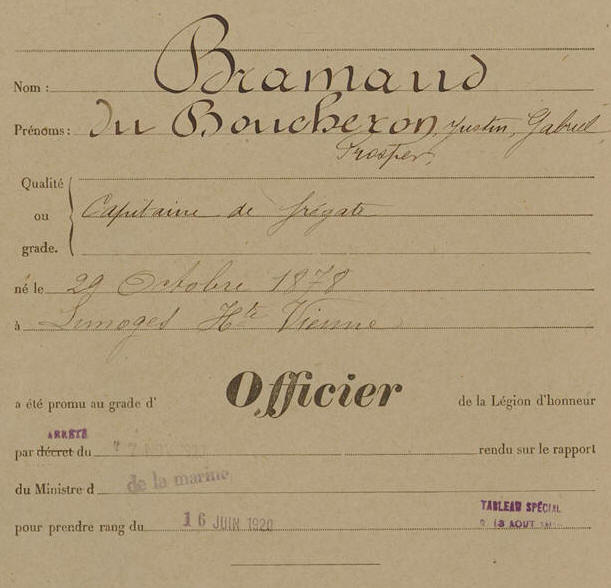 Nom : Bramaud
Prénoms : Du Boucheron, Justin, Gabriel
Prosper,
Qualité
ou
grade.
Capitaine de frégate
né le 29 Octobre 1878
à Limoges Hte Vienne
a été promu au grade d' Officier de la Légion d'honneur
ARRÊTÉ
par décret du rendu sur le rapport
du Ministre d de la marine
TABLEAU SPÉCIAL
pour prendre rang du 16 JUIN 1920
13 AOUT